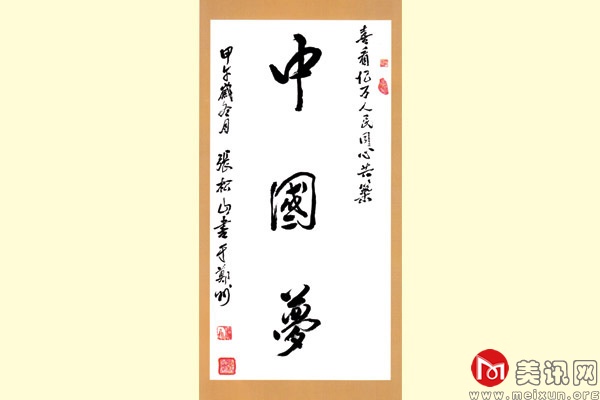 喜看亿万人民同心共築
中國夢
甲午歲冬月 張松山書于鄭州
美讯网
www.meixun.org